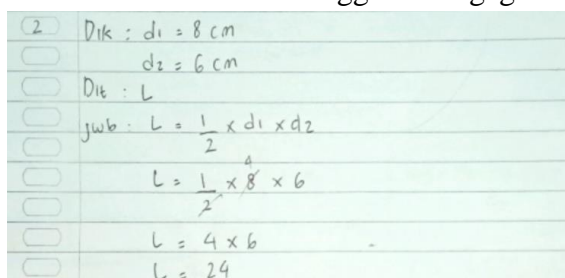 2 Dik : d1 = 8 cm
d2 = 6 cm
Dit : L
jwb : L = 1/2 x d1 x d2
L = 1/2 x 8 x 6
4
L = 4 x 6
L = 24